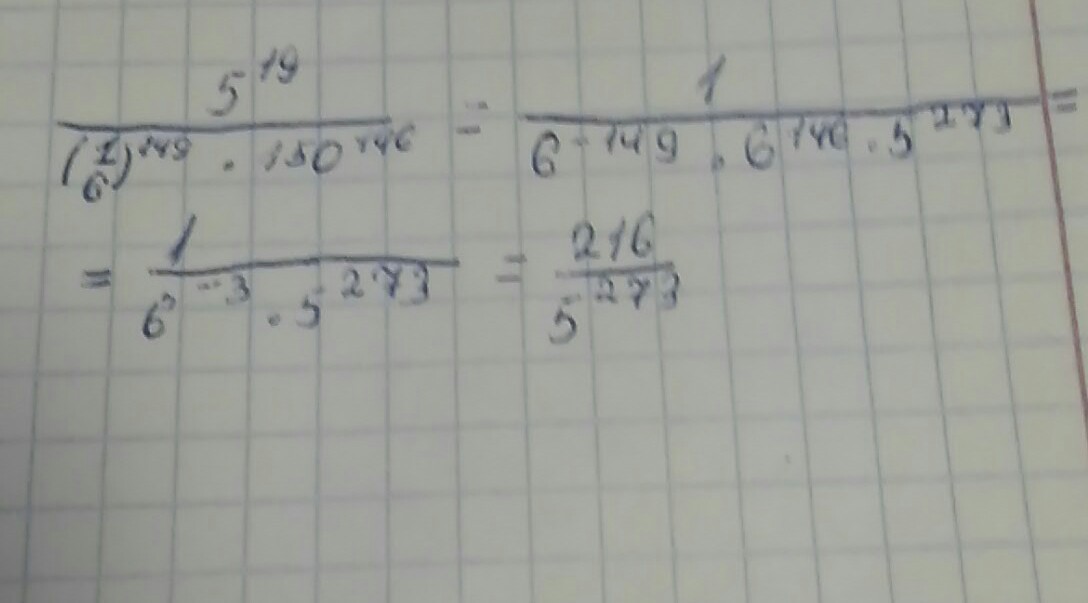 5^19 / ((1/6)^149 · 150^146) = 1 / (6^-149 · 6^146 · 5^273) =
= 1 / (6^-3 · 5^273) = 216 / 5^273